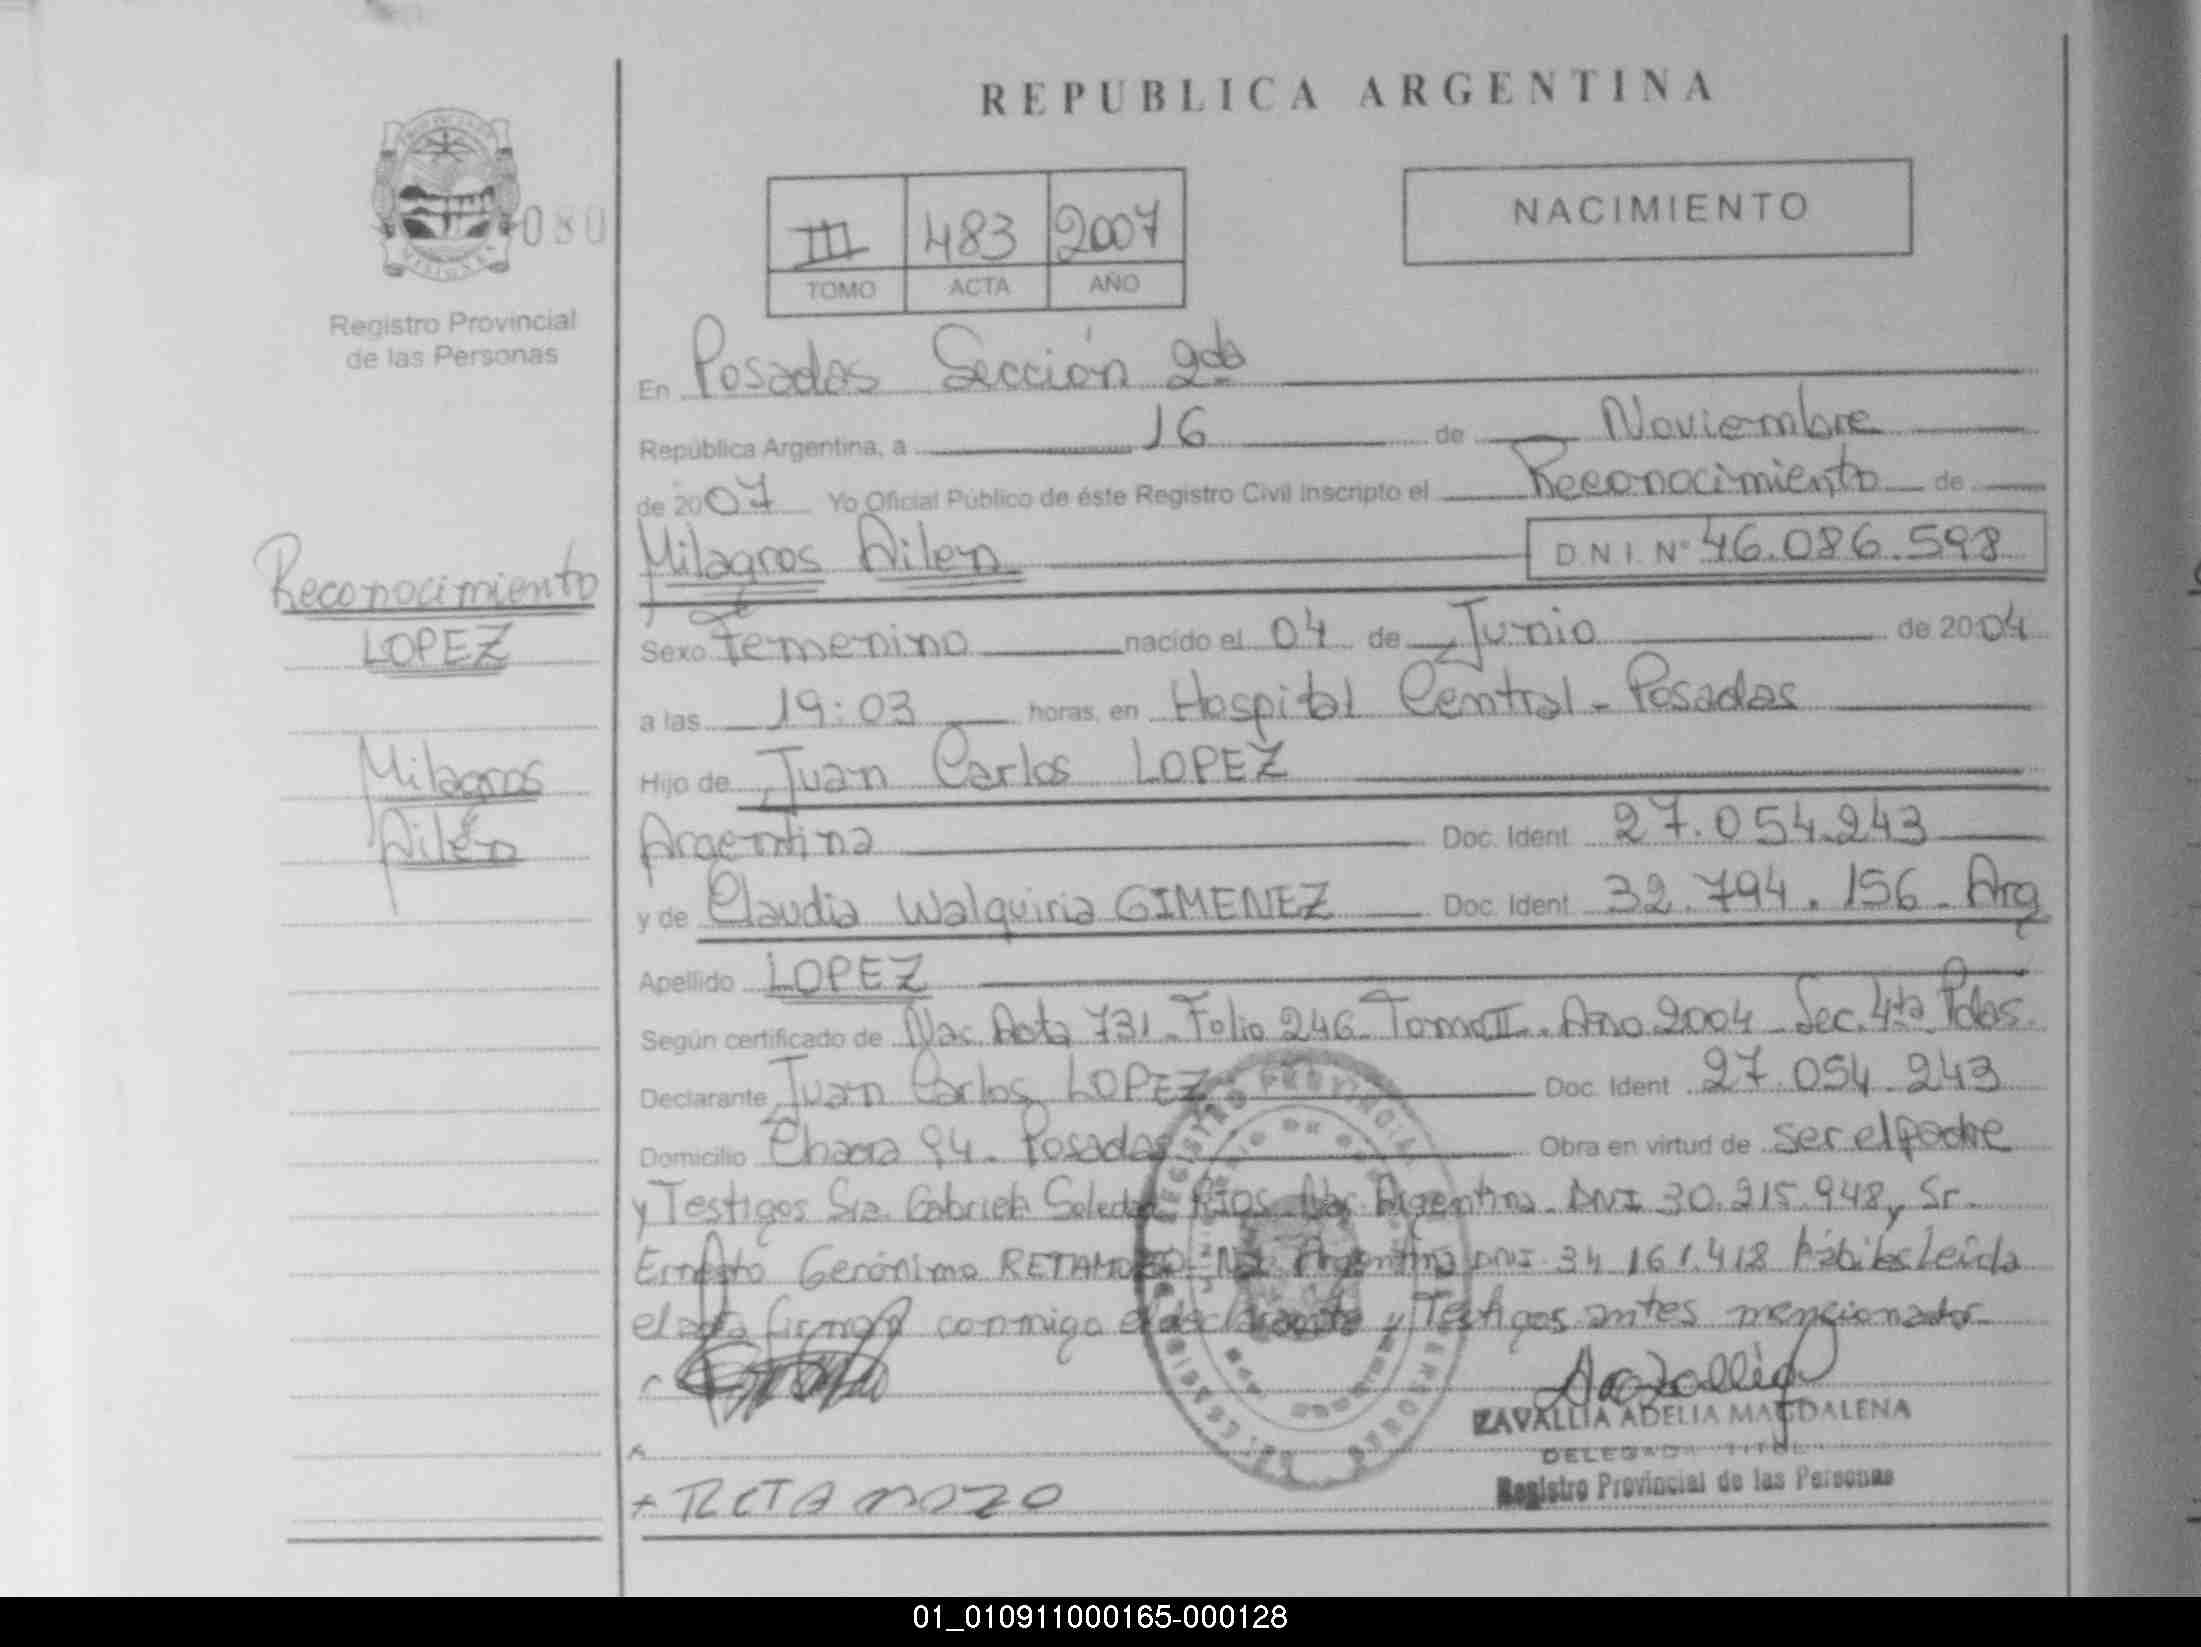 REPUBLICA ARGENTINA
080
MISIONES
Registro Provincial
de las Personas
III 483 2007
TOMO ACTA AÑO
NACIMIENTO
En Posadas Sección 2da
República Argentina, a 16 de Noviembre
de 2007 Yo Oficial Público de éste Registro Civil Inscripto el Reconocimiento de
Milagros Ailen D N I. Nº 46.086.598
Reconocimiento
LOPEZ
Milagros
Ailén
Sexo Femenino nacido el 04 de Junio de 2004
a las 19:03 horas, en Hospital Central - Posadas
Hijo de Juan Carlos LOPEZ
Argentina Doc. Ident 27.054.243
y de Claudia Walquiria GIMENEZ Doc. Ident 32.794.156 - Arg
Apellido LOPEZ
Según certificado de Nac. Acta 731 - Folio 246 - Tomo II - Año 2004 - Sec. 4ta Pdas.
Declarante Juan Carlos LOPEZ Doc. Ident 27.054.243
Domicilio Chacra 94 - Posadas Obra en virtud de ser el padre
y Testigos Sra. Gabriela Soledad RIOS Nac. Argentina - DNI 30.215.948 y Sr.
Ernesto Gerónimo RETAMOZO - Nac. Argentina DNI 34.161.418 hábiles Leída
el acta firman conmigo el declarante y Testigos antes mencionados
REGISTRO PROVINCIAL
ZAVALLIA ADELIA MAGDALENA
DELEGADA TITUL
Registro Provincial de las Personas
+ RETAMOZO
01_010911000165-000128